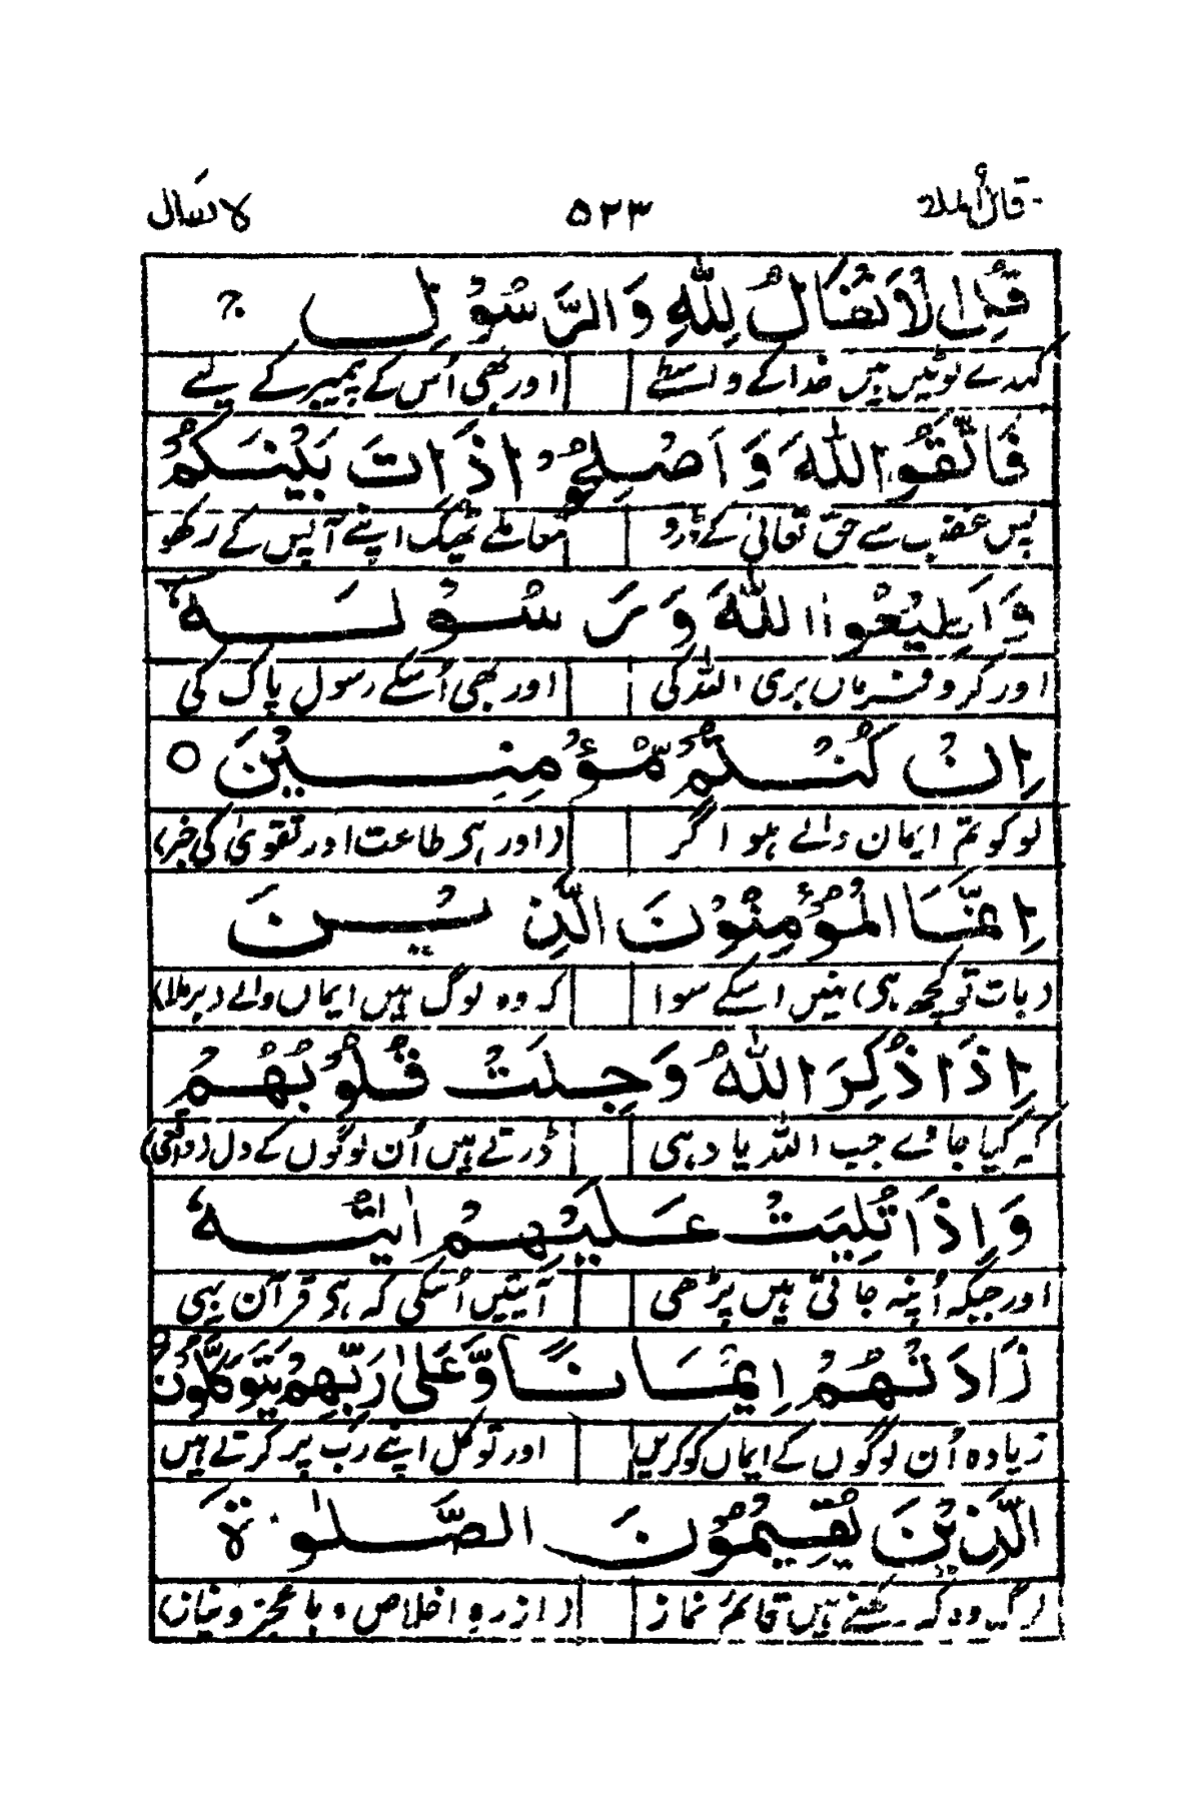 قال الملا ۵۲۳ الانفال
قُلِ الْاَنْفَالُ لِلّٰهِ وَالرَّسُوْلِ ج
کہدے لوٹیں ہیں خدا کے واسطے اور بھی اُس کے پیمبر کے لئے
فَاتَّقُوا اللّٰهَ وَاَصْلِحُوْا ذَاتَ بَيْنِكُمْ
پس غضب سے حق تعالیٰ کے ڈرو معاملے ٹھیک اپنے آپس کے رکھو
وَاَطِيْعُوا اللّٰهَ وَرَسُوْلَهٗ
اور کرو فرماں بری اللہ کی اور بھی اُسکے رسول پاک کی
اِنْ كُنْتُمْ مُّؤْمِنِيْنَ ○
لوگو تم ایمان والے ہو اگر (اور ہے طاعت اور تقویٰ کی خبر)
اِنَّمَا الْمُؤْمِنُوْنَ الَّذِيْنَ
(بات تو کچھ ہی) نہیں اسکے سوا کہ وہ لوگ ہیں ایماں والے (برملا)
اِذَا ذُكِرَ اللّٰهُ وَجِلَتْ قُلُوْبُهُمْ
کہ کیا جائے جب اللہ یاد ہی ڈرتے ہیں اُن لوگوں کے دل (واقعی)
وَاِذَا تُلِيَتْ عَلَيْهِمْ اٰيٰتُهٗ
اور جبکہ اُنپہ جاتی ہیں پڑھی آیتیں اُسکی کہ ہے قرآن یہی
زَادَتْهُمْ اِيْمَانًا وَّعَلٰى رَبِّهِمْ يَتَوَكَّلُوْنَ
زیادہ اُن لوگوں کے ایماں کو کریں اور توکل اپنے رب پر کرتے ہیں
الَّذِيْنَ يُقِيْمُوْنَ الصَّلٰوةَ
وہ کہ رکھتے ہیں قائم نماز (از رہ اخلاص و با عجز و نیاز)